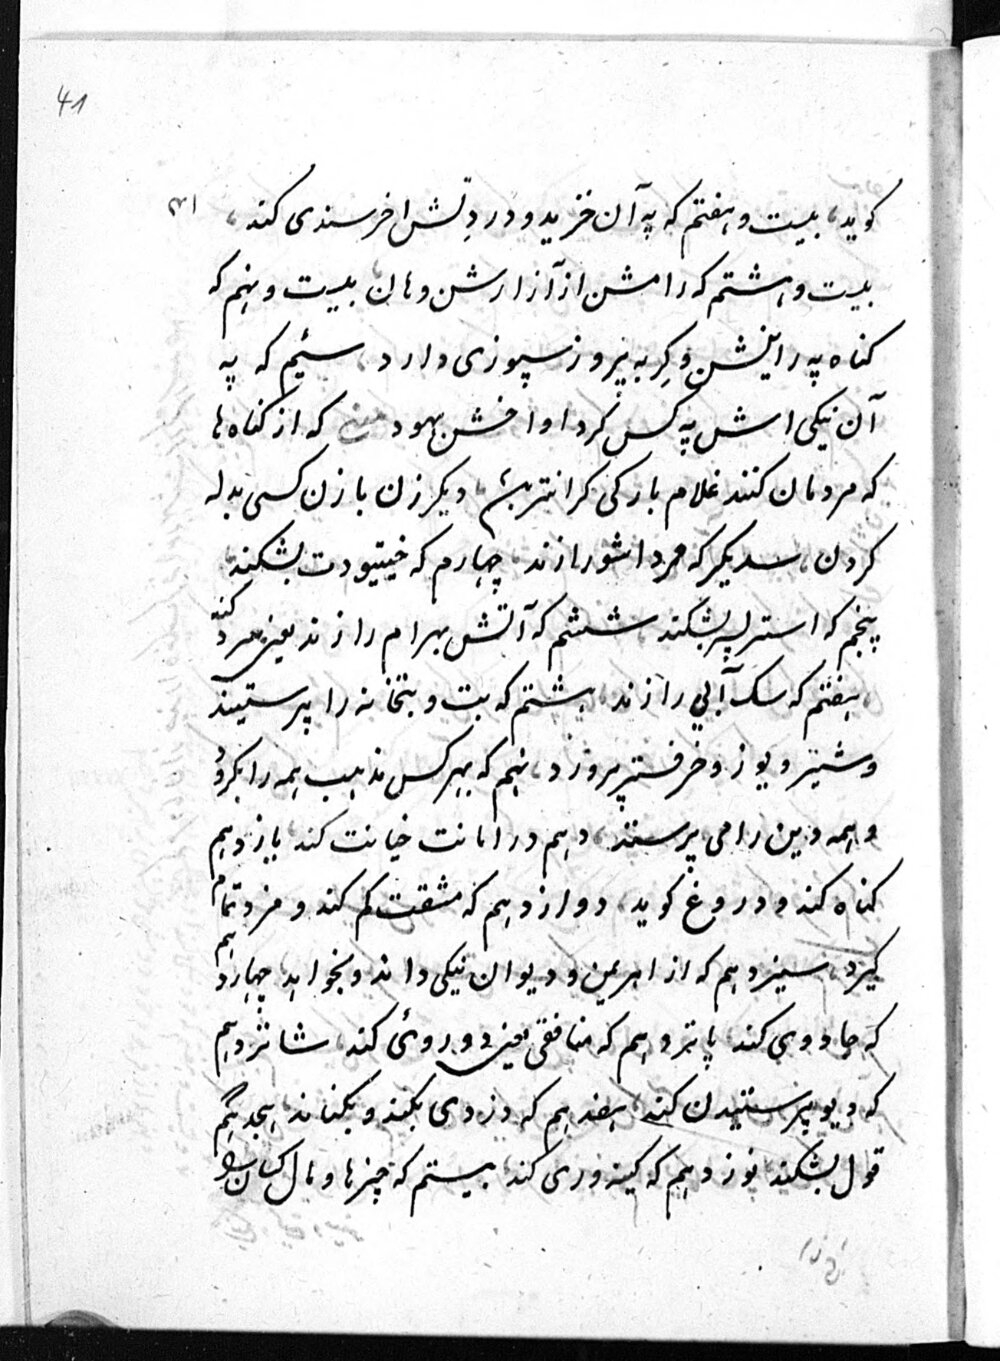 41
گوید، بیست و هفتم که په آن خرید و درد تنش اخرسندی کند،
بیست و هشتم که رامشن از آزارشن وهان، بیست و نهم که
کناه په راینشن و کربه نیروز سپوزی دارد، سئیم که په
آن نیکی اش په کس کرد اواخشن بهود که از کناه ها
که مردمان کنند غلام بارکی کرانتر بئ، دیکر زن با زن کسی بدله
کردن، سدیکر که مرد اشو را زند، چهارم که خیتیودت بشکند،
پنجم که استر پسر بشکند، ششم که آتش بهرام را زند یعنی سرد کند
هفتم که سک آبی را زند، هشتم که بت و بتخانه را پرستیند
و شیر و یوز و خرفستر پروزد، نهم که بهر کس مذهب همه را بکرود
و همه دین را می پرستند، دهم در امانت خیانت کند، یازدهم
کناه کند و دروغ کوید، دوازدهم که مشقت کم کند و مزد تمام
کیرد، سیزدهم که از اهریمن و دیوان نیکی داند و بخواهد، چهاردهم
که جادوی کند، پانزدهم که منافقی یعنی دوروئی کند، شانزدهم
که دیو پرستیدن کند، هفدهم که دزدی بکند و بکناند، هجدهم
قول بشکند، نوزدهم که کینه وری کند، بیستم که چیزها و مال کسان